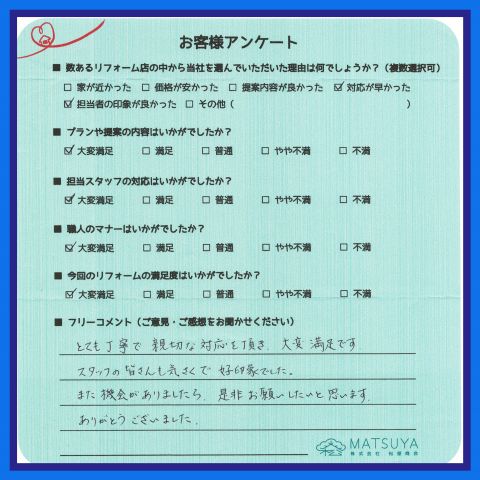 お客様アンケート
■ 数あるリフォーム店の中から当社を選んでいただいた理由は何でしょうか？（複数選択可）
□ 家が近かった □ 価格が安かった □ 提案内容が良かった ☑ 対応が早かった
☑ 担当者の印象が良かった □ その他（ ）
■ プランや提案の内容はいかがでしたか？
☑ 大変満足 □ 満足 □ 普通 □ やや不満 □ 不満
■ 担当スタッフの対応はいかがでしたか？
☑ 大変満足 □ 満足 □ 普通 □ やや不満 □ 不満
■ 職人のマナーはいかがでしたか？
☑ 大変満足 □ 満足 □ 普通 □ やや不満 □ 不満
■ 今回のリフォームの満足度はいかがでしたか？
☑ 大変満足 □ 満足 □ 普通 □ やや不満 □ 不満
■ フリーコメント（ご意見・ご感想をお聞かせください）
とても丁寧で 親切な対応を頂き、大変満足です。
スタッフの皆さんも気さくで 好印象でした。
また機会がありましたら、是非お願いしたいと思います。
ありがとうございました。
MATSUYA
株式会社 松屋商会